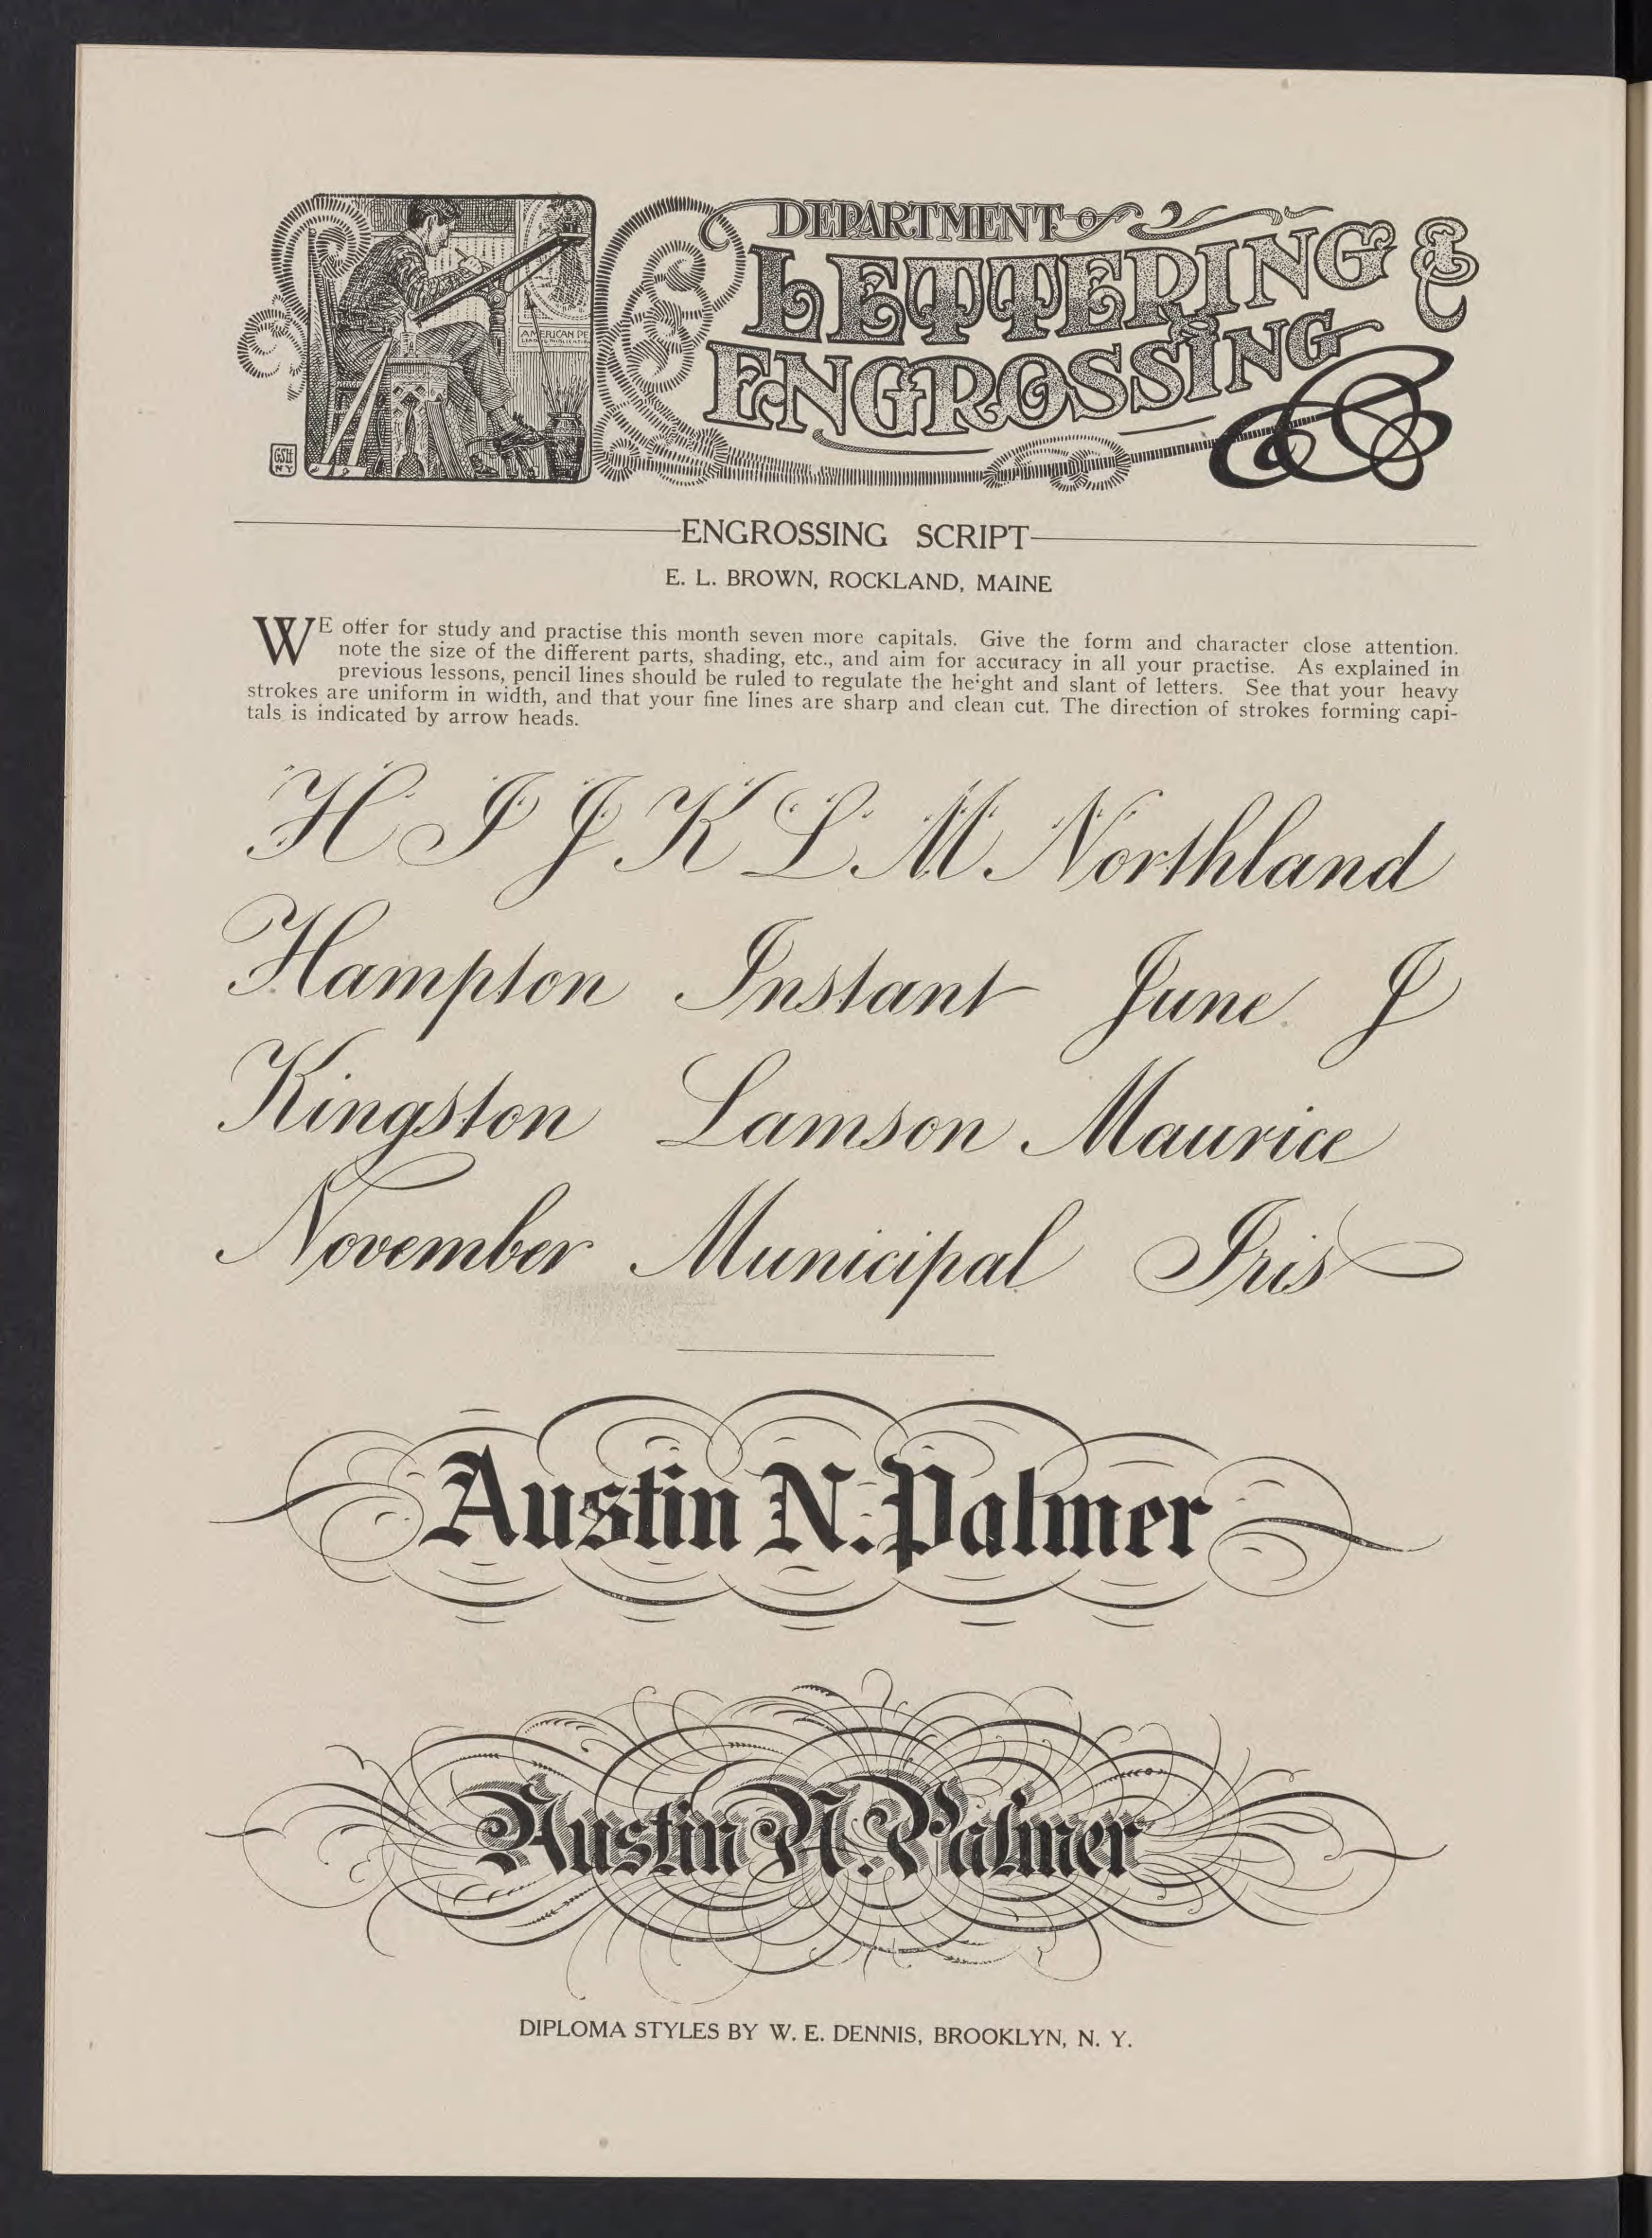 DEPARTMENT of
LETTERING &
ENGROSSING
AMERICAN PE
GSH
NY
ENGROSSING SCRIPT
E. L. BROWN, ROCKLAND, MAINE
WE offer for study and practise this month seven more capitals. Give the form and character close attention.
note the size of the different parts, shading, etc., and aim for accuracy in all your practise. As explained in
previous lessons, pencil lines should be ruled to regulate the height and slant of letters. See that your heavy
strokes are uniform in width, and that your fine lines are sharp and clean cut. The direction of strokes forming capi-
tals is indicated by arrow heads.
H I J K L M Northland
Hampton Instant June J
Kingston Lamson Maurice
November Municipal Iris
Austin N. Palmer
Austin N. Palmer
DIPLOMA STYLES BY W. E. DENNIS, BROOKLYN, N. Y.